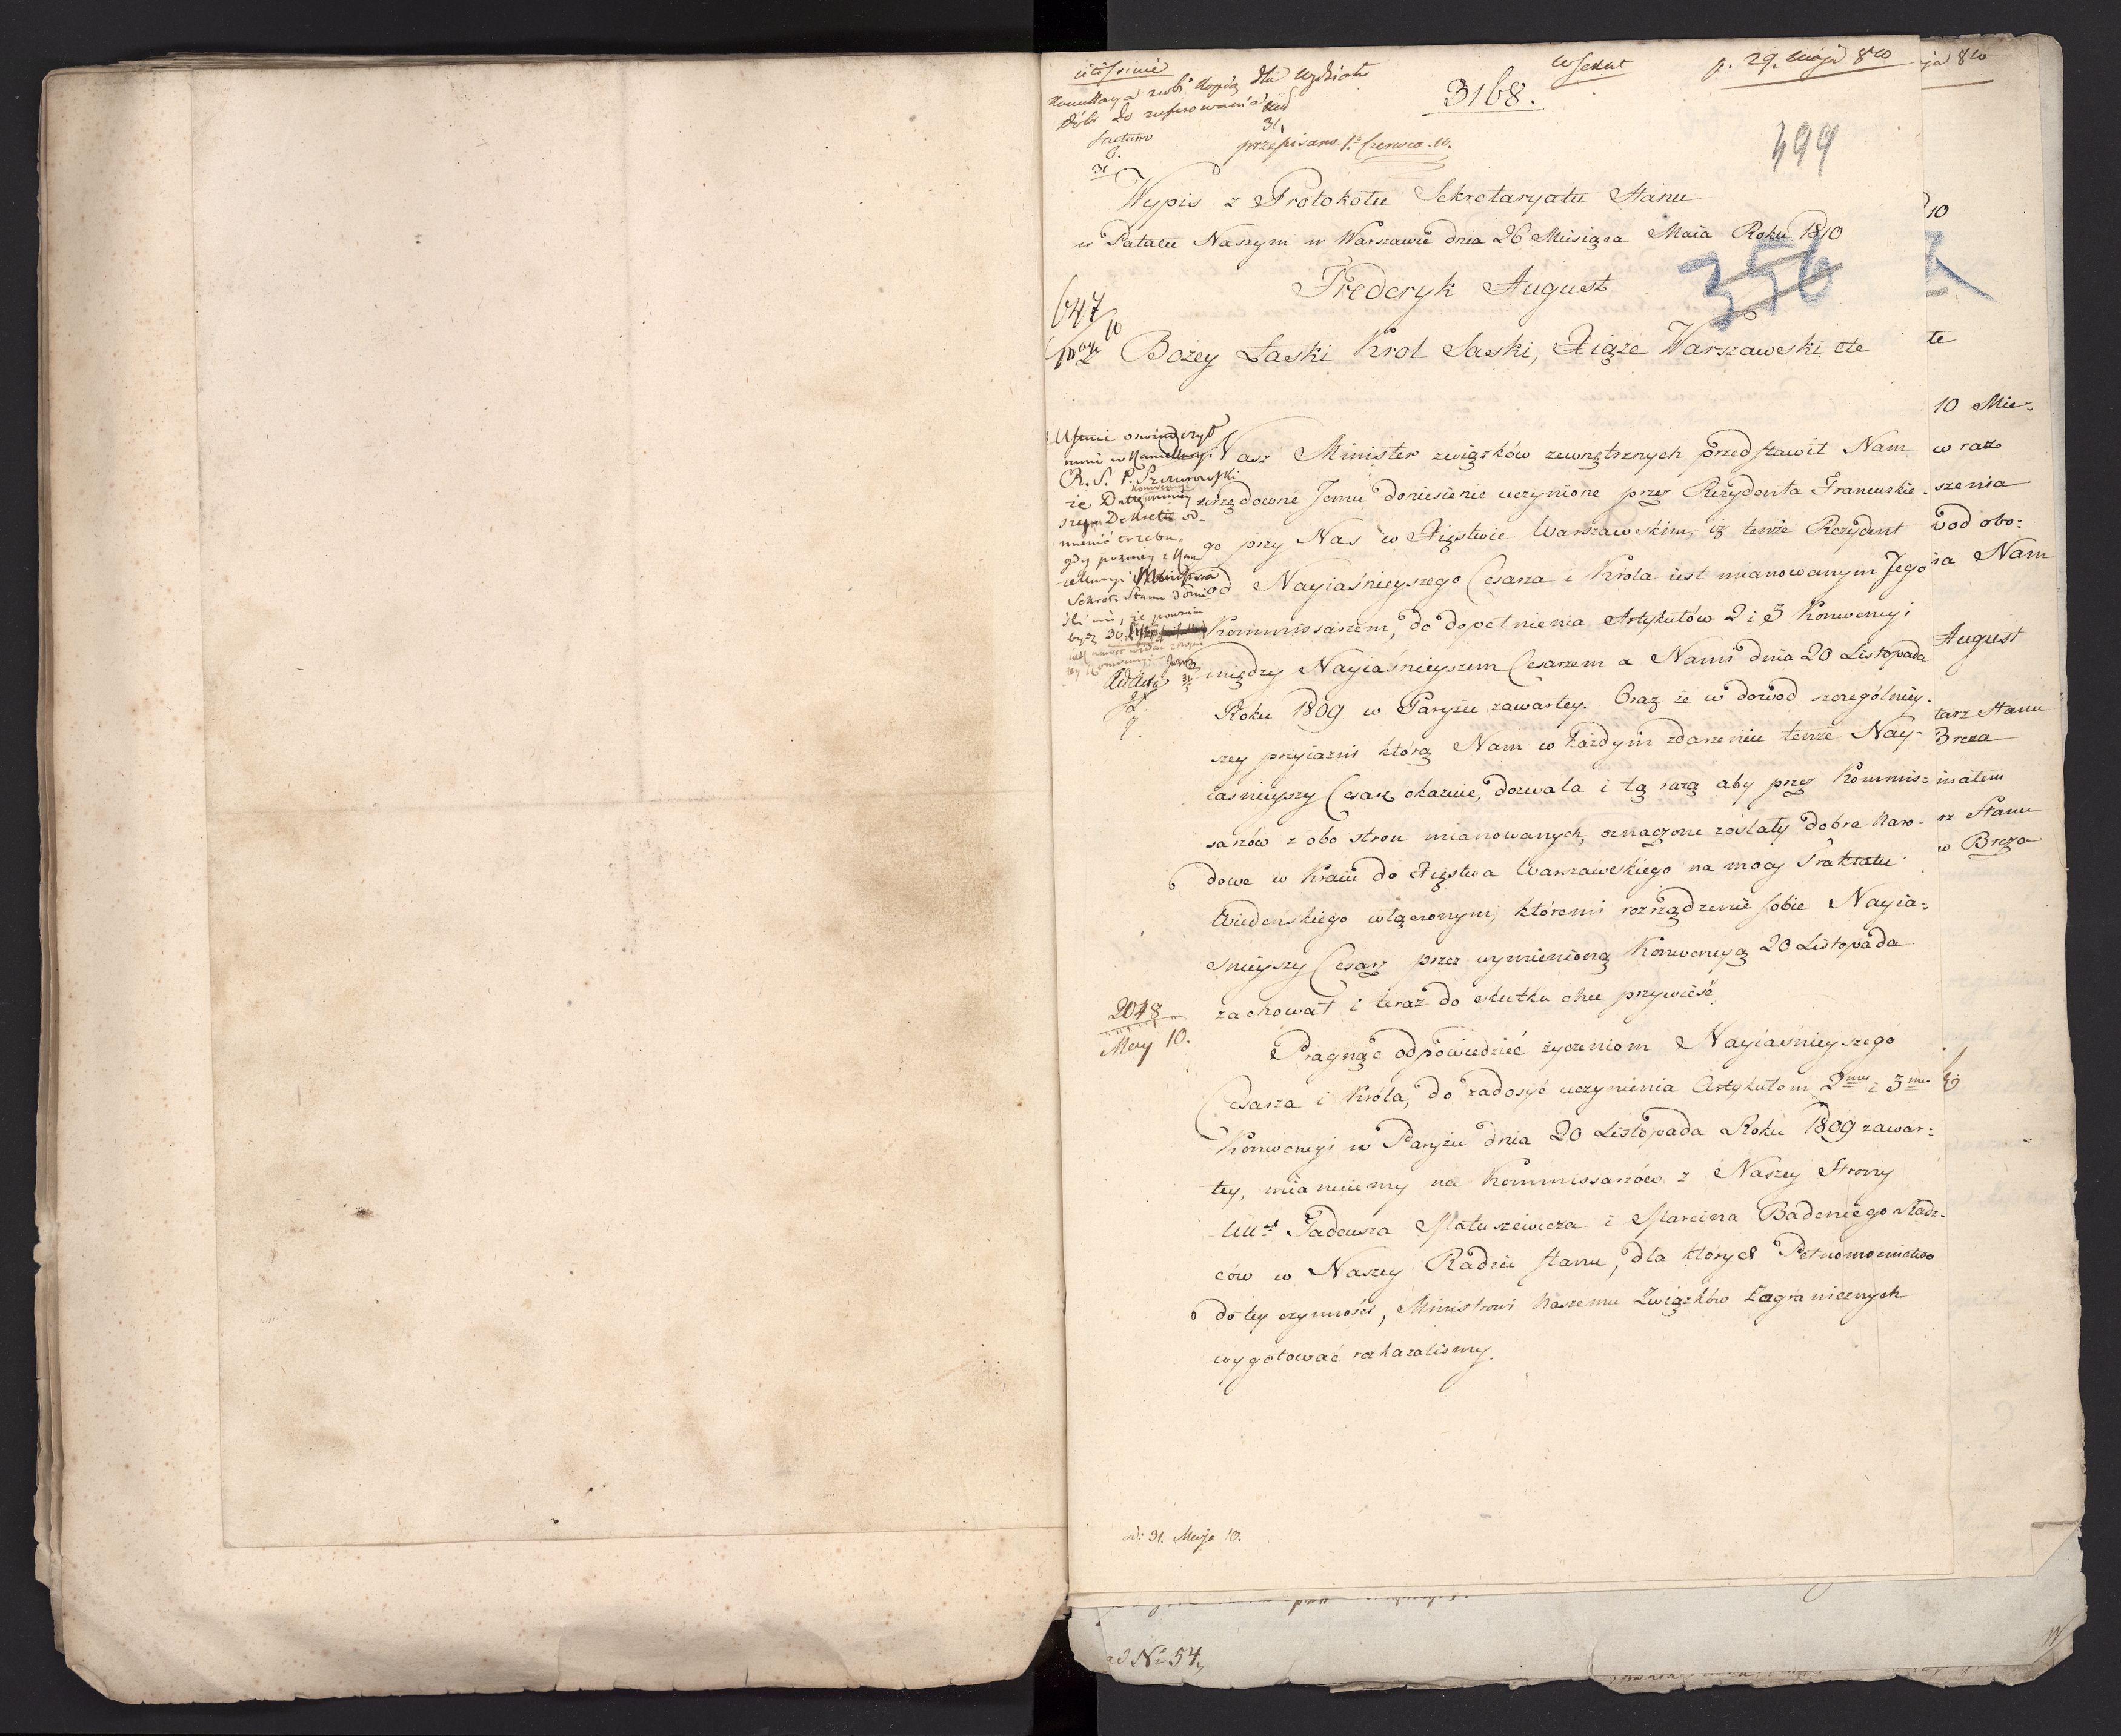 citissime
Kancellarya zrobi Kopią dla Wydziału
dóbr do referowania
31
factum
31
przepisano 1. Czerwca. 10.
3168.
W Sekret
p. 29. maja 810
499
Wypis z Protokołu Sekretaryatu Stanu
w Pałacu Naszym w Warszawie dnia 26 Miesiąca Maia Roku 1810
356
Frederyk August
647
maja 10
Bożey Łaski Krol Saski, Xiąże Warszawski etc
Ustnie oswiadczył
mnie w Kancellaryi
R. S. P. Szczurowski
że Datę
Dekretu od-
mienić trzeba,
gdy pozniey z Kan
cellaryi Ministra
Sekret. Stanu donie
śli mi, że powinn
być 30.
Ad Acta
Nasz Minister związków zewnętrznych przedstawił Nam
urzędowne Jemu doniesienie uczynione przez Rezydenta Francuskie-
go przy Nas w Xięstwie Warszawskim, iż tenże Rezydent
od Nayiaśnieyszego Cesarza i Króla iest mianowanym Jego
Kommissarzem, do dopełnienia Artykułów 2 i 3 Konwencyi
między Nayiaśnieyszem Cesarzem a Nami dnia 20 Listopada
Roku 1809 w Paryżu zawartey. Oraz że w dowod szczególniey-
szey przyiaźni którą Nam w każdym zdarzeniu tenże Nay-
iaśnieyszy Cesarz okazuie, dozwala i tą razą aby przez Kommis=
sarzów z obo stron mianowanych, oznaczone zostały dobra Naro-
dowe w Kraiu do Xięstwa Warszawskiego na mocy Traktatu
Wiedenskiego włączonym, któremi rozrządzenie sobie Nayia=
śnieyszy Cesarz przez wymienioną Konwencyą 20 Listopada
zachował i teraz do skutku chce przywieść.
2048
May 10.
Pragnąc odpowiedzieć życzeniom Nayiaśnieyszego
Cesarza i Króla, do zadosyć uczynienia Artykułom 2mu i 3mu
Konwencyi w Paryżu dnia 20 Listopada Roku 1809 zawar=
tey, mianuiemy na Kommissarzów z Naszey Strony
UUch Tadeusza Matuszewicza i Marcina Badeniego Radz-
ców w Naszey Radzie Stanu, dla których Pełnomocnictwo
do tey czynności, Ministrowi Naszemu Związków Zagranicznych
wygotować rozkazalismy.
od: 31. Maja 10.
ja 810
10
te
10 Mie=
w raz
szenia
wod obo=
ia Nam
August
tarz Stanu
Breza
inałem
rz Stanu
w Breza
ad No 54